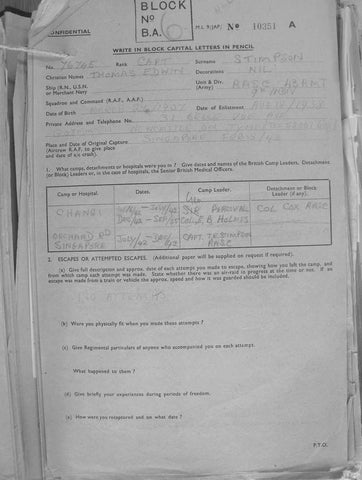 CONFIDENTIAL
BLOCK
No
B.A. 6
M.I. 9/JAP/ No 10351 A
WRITE IN BLOCK CAPITAL LETTERS IN PENCIL
No. Rank CAPT Surname STIMPSON
Christian Names THOMAS EDWIN Decorations NIL
Ship (R.N., U.S.N. or Merchant Navy Unit & Div. (Army) RASC
Squadron and Command (R.A.F., A.A.F.)
Date of Birth Date of Enlistment
Private Address and Telephone No.
Place and Date of Original Capture SINGAPORE
(Aircrew R.A.F. to give place and date of a/c crash).
1. What camps, detachments or hospitals were you in? Give dates and names of the British Camp Leaders, Detachment (or Block) Leaders or, in the case of hospitals, the Senior British Medical Officers.
Camp or Hospital. Dates. Camp Leader. Detachment or Block Leader (if any).
CHANGI PERCIVAL COL COX RASC
HOLMES
ORCHARD RD SINGAPORE JULY/42 DEC/42 CAPT T.E STIMPSON RASC
2. ESCAPES OR ATTEMPTED ESCAPES. (Additional paper will be supplied on request if required).
(a) Give full description and approx. date of each attempt you made to escape, showing how you left the camp, and from which camp each attempt was made. State whether there was an air-raid in progress at the time or not. If an escape was made from a train or vehicle the approx. speed and how it was guarded should be included.
NO ATTEMPTS
(b) Were you physically fit when you made these attempts?
(c) Give Regimental particulars of anyone who accompanied you on each attempt.
What happened to them?
(d) Give briefly your experiences during periods of freedom.
(e) How were you recaptured and on what date?
P.T.O.